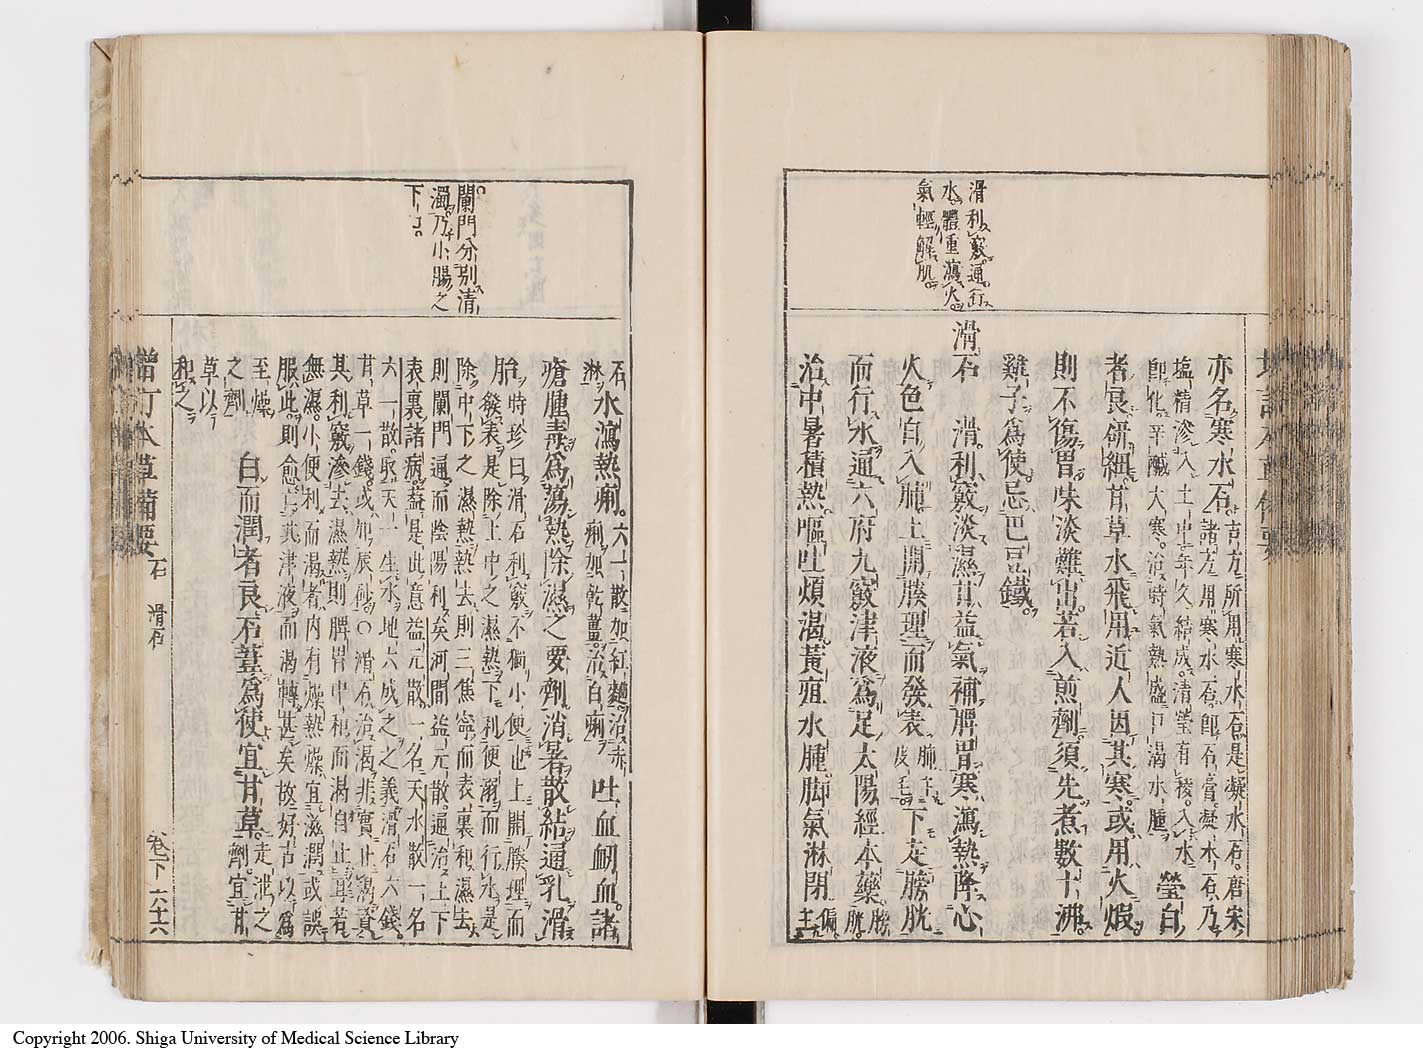 滑利竅通行
水體重瀉火
氣輕解肌
亦名寒水石
古方所用寒水石是凝水石唐宋
諸方用寒水石卽石膏凝水石乃
塩精滲入土中年久結成清瑩有稜入水
卽化辛鹹大寒治時氣熱盛口渴水腫
瑩白
者良研細甘草水飛用近人因其寒或用火煆
則不傷胃味淡難出若入煎劑須先煮數十沸
雞子爲使忌巴豆鐵
滑石 滑利竅淡滲濕甘益氣補脾胃寒瀉熱降心
火色白入肺上開腠理而發表
肺主
皮毛
下走膀胱
而行水通六府九竅津液爲足太陽經本藥
膀
胱
治中暑積熱嘔吐煩渴黃疸水腫脚氣淋閉
偏主
石
淋
水瀉熱痢
六一散加紅麴治赤
痢加乾薑治白痢
吐血衂血諸
瘡腫毒爲蕩熱除濕之要劑消暑散結通乳滑
胎
時珍曰滑石利竅不獨小便也上開腠理而
發表是除上中之濕熱下利便溺而行水是
除中下之濕熱熱去則三焦寧而表裏和濕去
則闌門通而陰陽利矣河間益元散通治上下
表裏諸病蓋是此意益元散一名天水散一名
六一散取天一生水地六成之之義滑石六錢
甘草一錢或加辰砂○滑石治渴非實止渴資
其利竅滲去濕熱則脾胃中和而渴自止耳若
無濕小便利而渴者內有燥熱燥宜滋潤或誤
服此則愈亡其津液而渴轉甚矣故好古以爲
至燥
之劑
白而潤者良石葦爲使宜甘草
走泄之
劑宜甘
草以
和之
闌門分別清
濁乃小腸之
下口
增訂本草備要 石 滑石 卷下 六十六
Copyright 2006. Shiga University of Medical Science Library